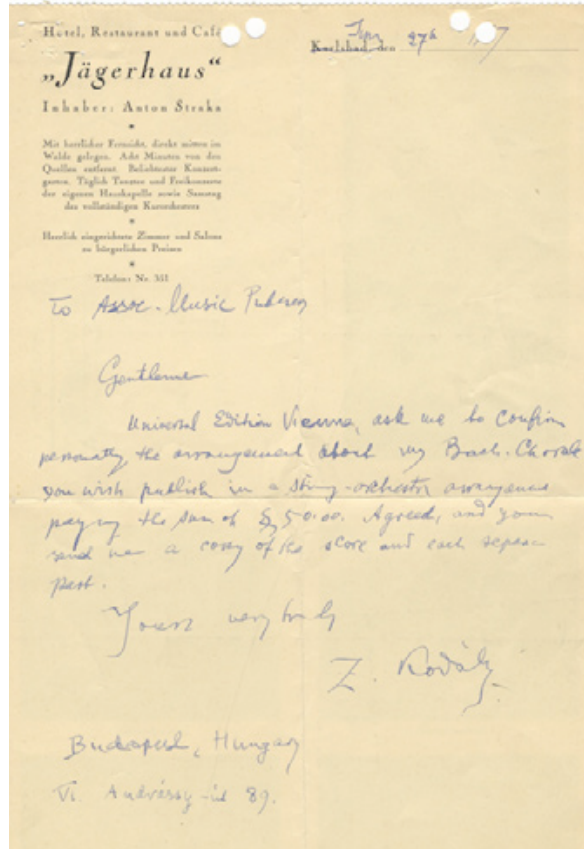 Hotel, Restaurant und Café
„Jägerhaus“
Inhaber: Anton Straka
Mit herrlicher Fernsicht, direkt mitten im
Walde gelegen. Acht Minuten von den
Quellen entfernt. Beliebtester Konzert-
garten. Täglich Tanztee und Freikonzerte
der eigenen Hauskapelle sowie Samstag
des vollständigen Kurorchesters
Herrlich eingerichtete Zimmer und Salons
zu bürgerlichen Preisen
Telefon: Nr. 351
Karlsbad, den 27th
To Assoc. Music
Gentlemen
Universal Edition Vienna, ask me to confirm
personally the arrangement about my Bach-Chorale
you wish publish in a string-orchestra
paying the sum of $ 50.00. Agreed, and you
send me a copy of the score and each
part.
Yours very truly
Z. Kodály
Budapest, Hungary
VI. Andrássy-út 89.